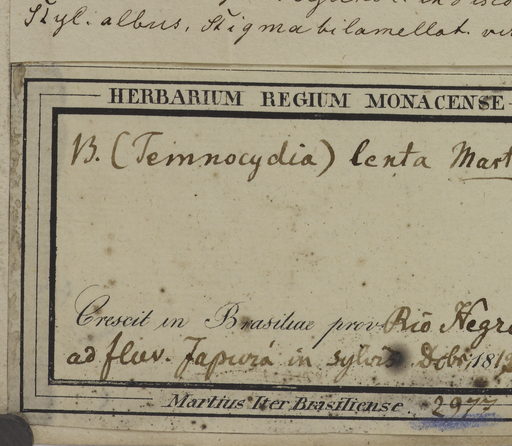 Styl. albus, Stigma bilamellat.
HERBARIUM REGIUM MONACENSE
B. (Temnocydia) lenta Mart
Crescit in Brasiliae prov. Rio Negro
ad fluv. Japurá in sylvis Dcbr, 181
Martius Iter Brasiliense 2977